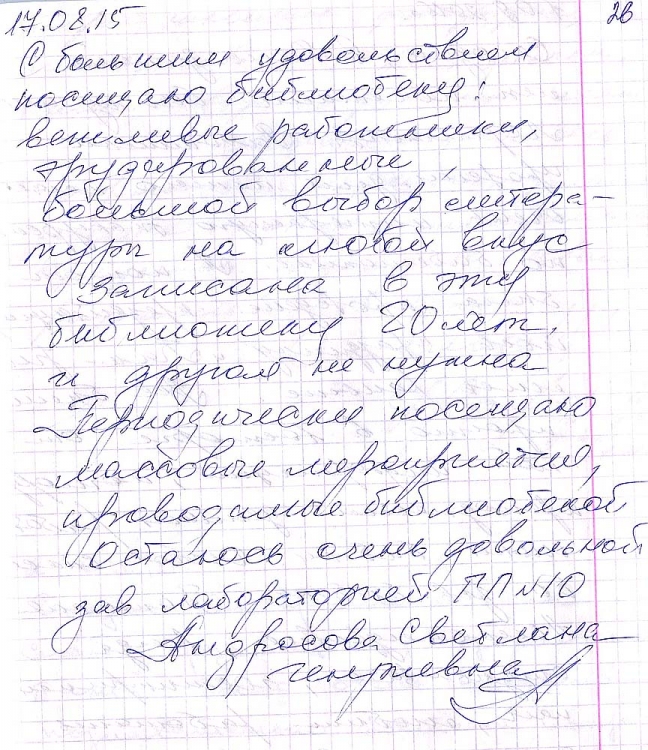 17.08.15
26
С большим удовольствием
посещаю библиотеку:
вежливые работники,
эрудированные,
большой выбор литера-
туры на любой вкус
Записана в эту
библиотеку 20 лет,
и другой не нужна
Периодически посещаю
массовые мероприятия,
проводимые библиотекой
Остаюсь очень довольной
зав лабораторией ГП №10
Андросова Светлана
Генриевна